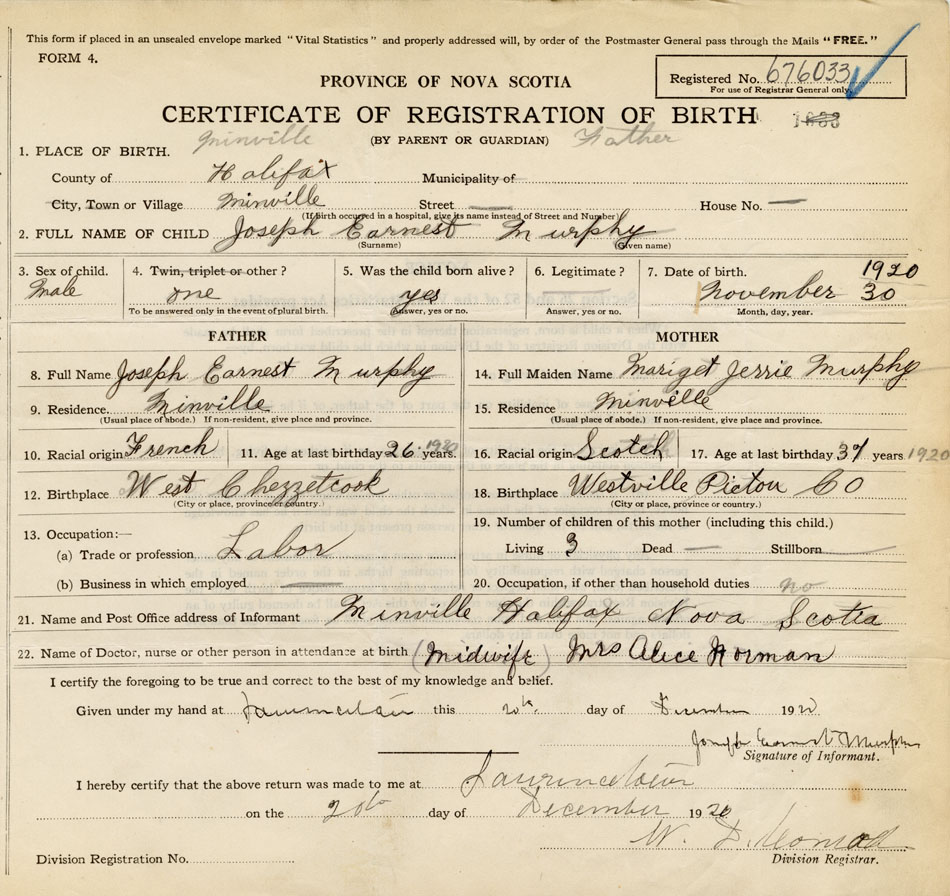 This form if placed in an unsealed envelope marked "Vital Statistics" and properly addressed will, by order of the Postmaster General pass through the Mails "FREE."
FORM 4.
PROVINCE OF NOVA SCOTIA
Registered No. 676033
For use of Registrar General only
CERTIFICATE OF REGISTRATION OF BIRTH
Minville (BY PARENT OR GUARDIAN) Father
1. PLACE OF BIRTH.
County of Halifax Municipality of
City, Town or Village Minville Street — House No. —
(If birth occurred in a hospital, give its name instead of Street and Number)
2. FULL NAME OF CHILD Joseph Earnest Murphy
(Surname) (Given name)
3. Sex of child. 4. Twin, triplet or other? 5. Was the child born alive? 6. Legitimate? 7. Date of birth. 1920
Male one yes — November 30
To be answered only in the event of plural birth. Answer, yes or no. Answer, yes or no. Month, day, year.
FATHER MOTHER
8. Full Name Joseph Earnest Murphy 14. Full Maiden Name Mariget Jerrie Murphy
9. Residence. Minville 15. Residence Minville
(Usual place of abode.) If non-resident, give place and province. (Usual place of abode.) If non-resident, give place and province.
10. Racial origin French 11. Age at last birthday 26 years. 1920 16. Racial origin Scotch 17. Age at last birthday 37 years. 1920
12. Birthplace West Chezzetcook 18. Birthplace Westville Pictou CO
(City or place, province or country.) (City or place, province or country.)
13. Occupation:— 19. Number of children of this mother (including this child.)
(a) Trade or profession Labor Living 3 Dead — Stillborn —
(b) Business in which employed — 20. Occupation, if other than household duties no
21. Name and Post Office address of Informant Minville Halifax Nova Scotia
22. Name of Doctor, nurse or other person in attendance at birth (Midwife) Mrs Alice Norman
I certify the foregoing to be true and correct to the best of my knowledge and belief.
Given under my hand at this 20th day of December 1920
Joseph Earnest Murphy
Signature of Informant.
I hereby certify that the above return was made to me at Lawrencetown
on the 20th day of December 1920
W. D.
Division Registration No. Division Registrar.